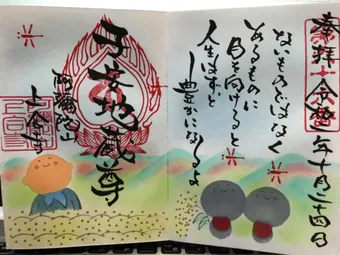 奉拝 令和二年十月二十四日
ないものではなく
あるものに
目を向けると
人生はずっと
豊かになるよ
子安地蔵尊